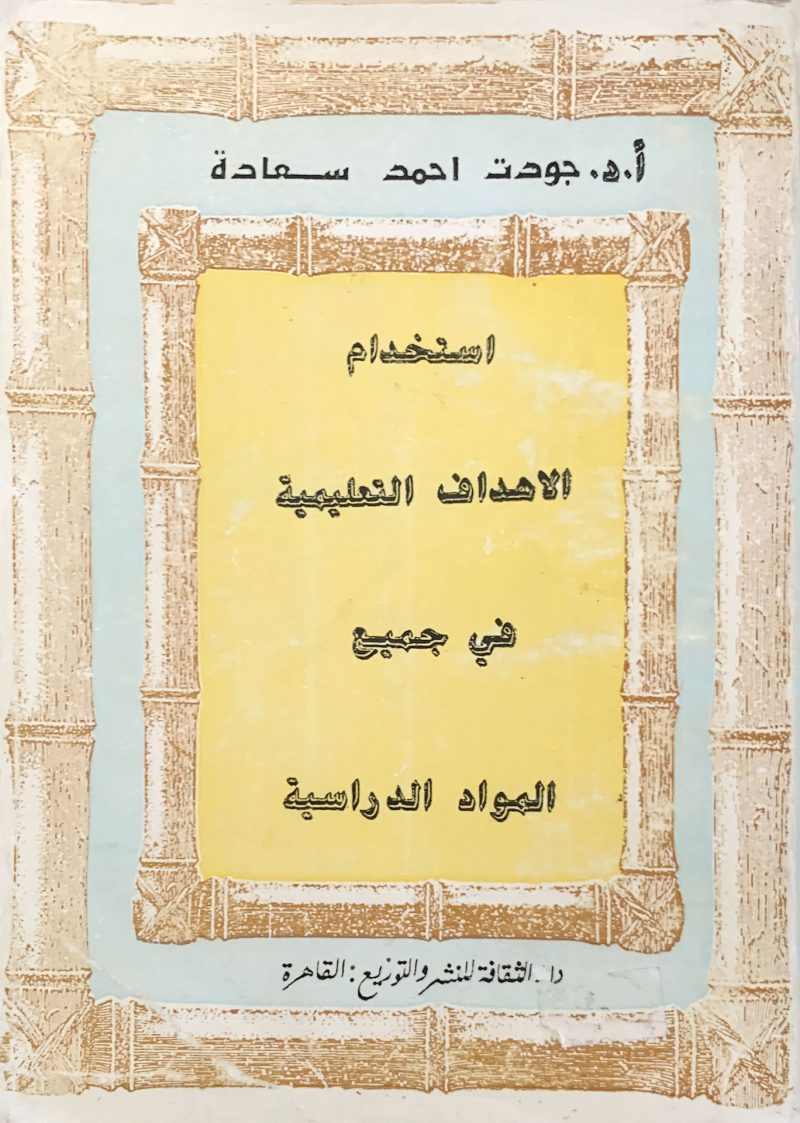 أ.د. جودت احمد سعادة
استخدام
الاهداف التعليمية
في جميع
المواد الدراسية
دار الثقافة للنشر والتوزيع : القاهرة